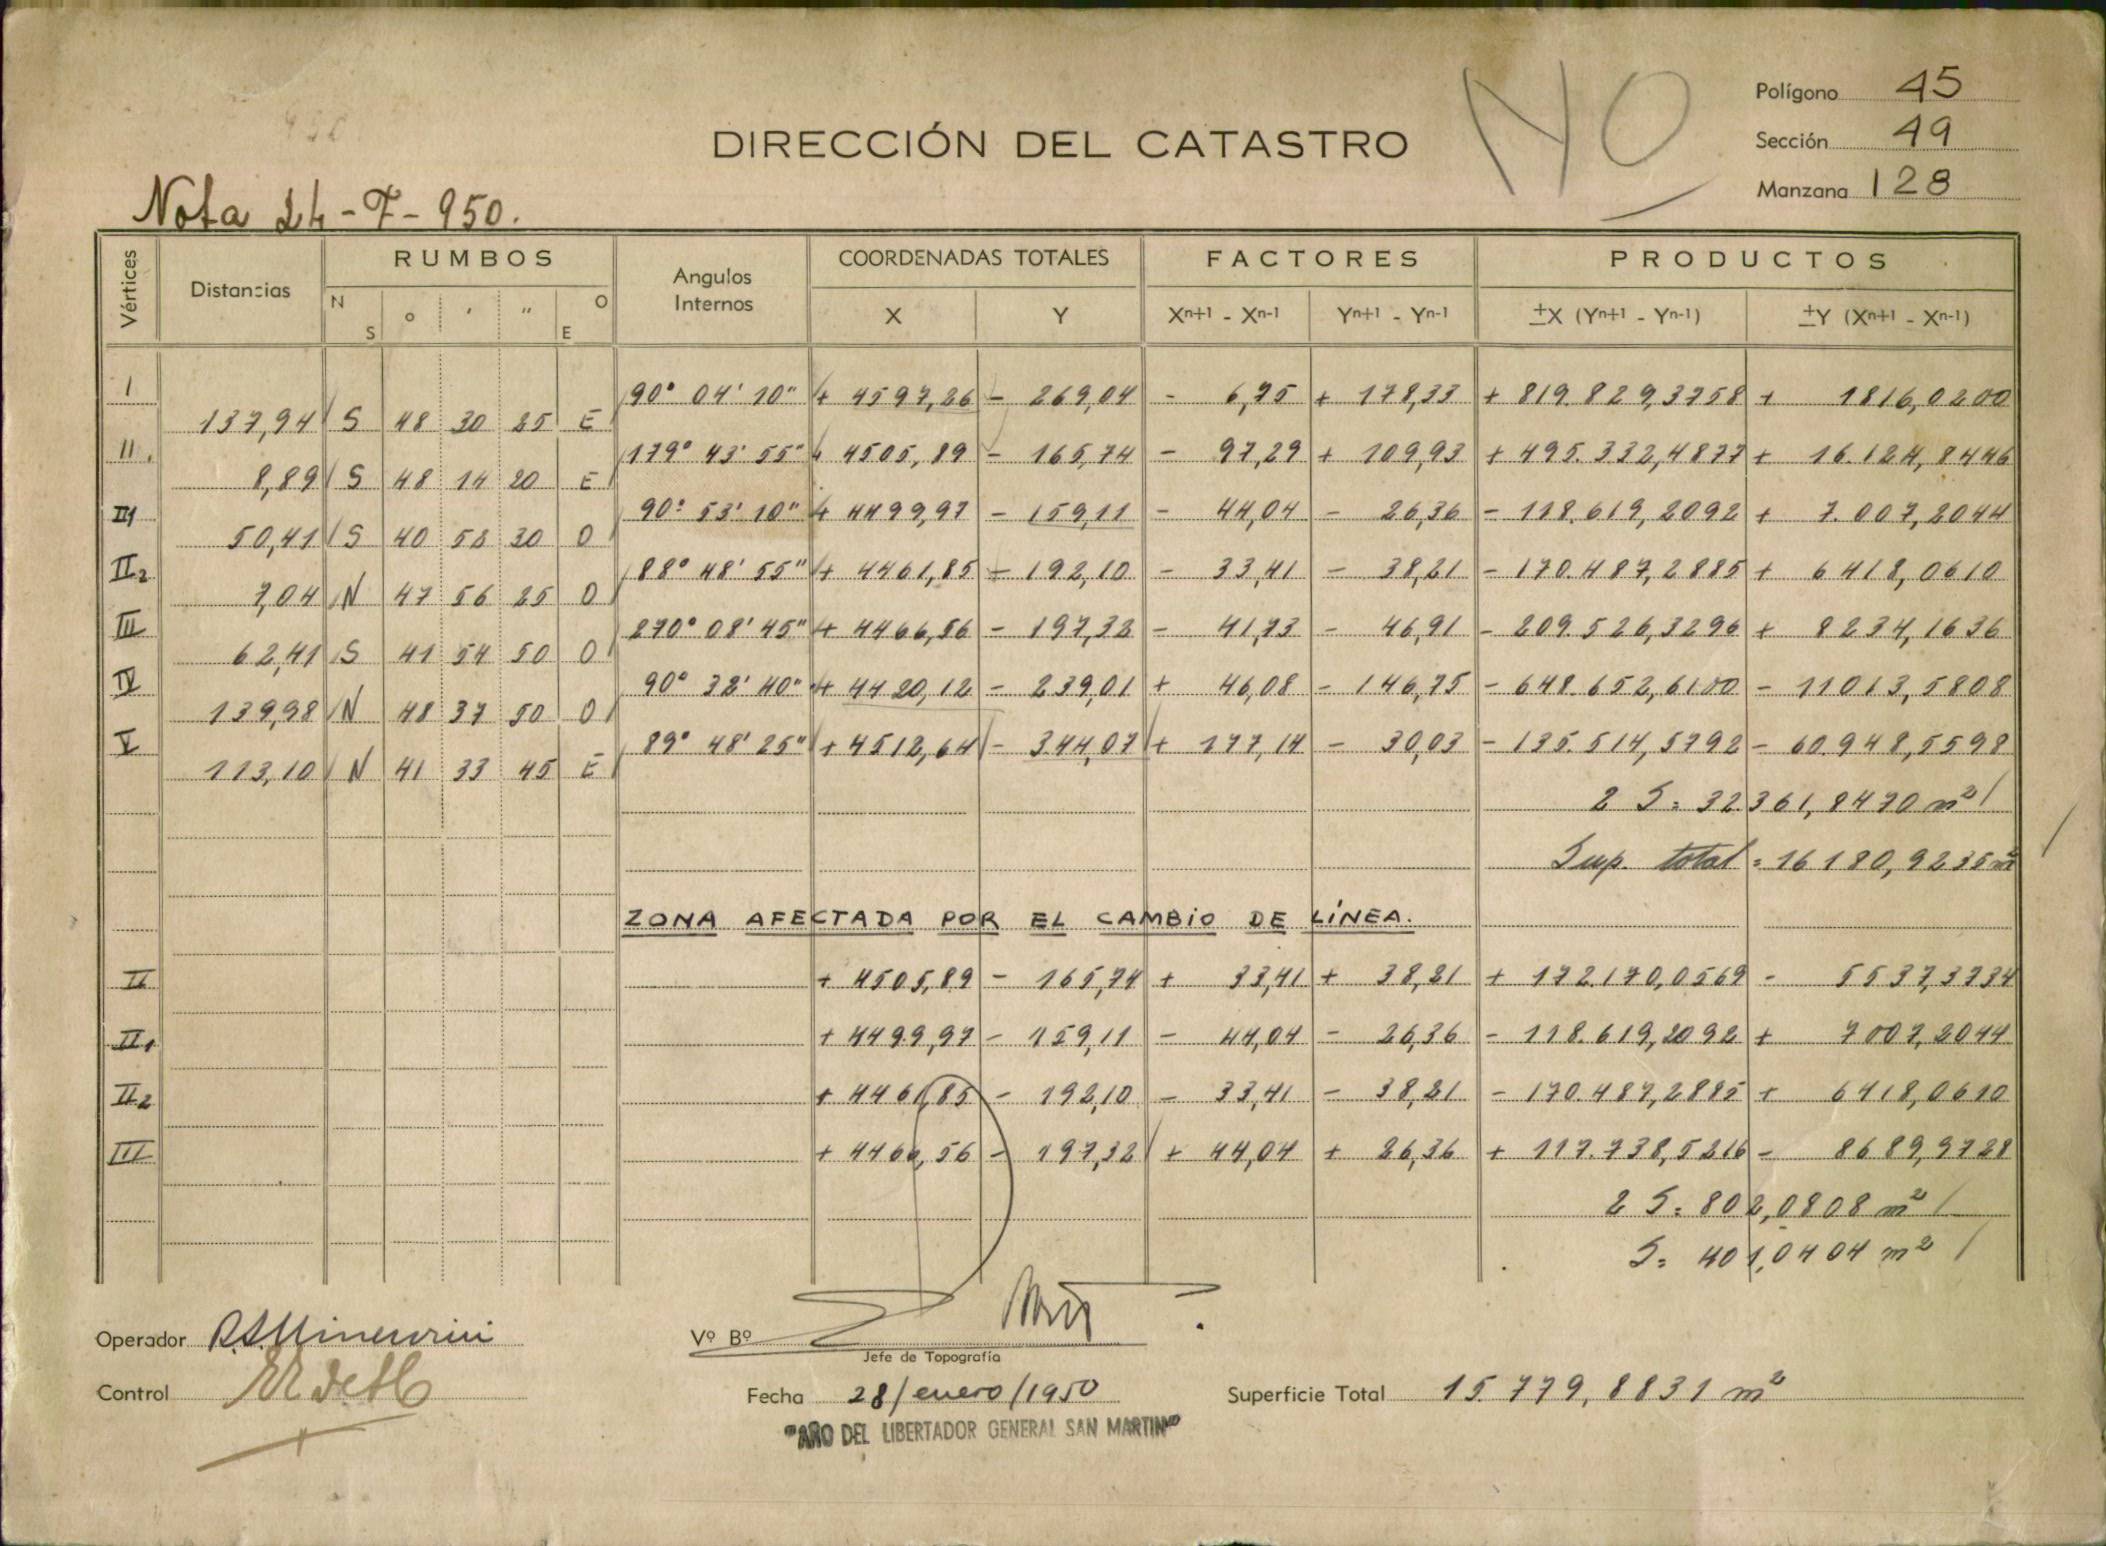 Polígono 45
DIRECCIÓN DEL CATASTRO NO
Sección 49
Manzana 128
Nota 24-7-950.
Vértices Distancias RUMBOS Angulos Internos COORDENADAS TOTALES FACTORES PRODUCTOS
N S ° ' " O E X Y Xn+1 - Xn-1 Yn+1 - Yn-1 ±X (Yn+1 - Yn-1) ±Y (Xn+1 - Xn-1)
I 90° 04' 10" + 4597,26 - 269,04 - 6,75 + 178,33 + 819.829,3758 + 1816,0200
137,94 S 48 30 25 E
II 179° 43' 55" + 4505,89 - 165,74 - 97,29 + 109,93 + 495.332,4877 + 16.124,8446
8,89 S 48 14 20 E
II1 90° 53' 10" + 4499,97 - 159,11 - 44,04 - 26,36 - 118.619,2092 + 7.007,2044
50,41 S 40 58 30 O
II2 88° 48' 55" + 4461,85 - 192,10 - 33,41 - 38,21 - 170.487,2885 + 6418,0610
7,04 N 47 56 25 O
III 270° 08' 45" + 4466,56 - 197,32 - 41,73 - 46,91 - 209.526,3296 + 8234,1636
62,41 S 41 54 50 O
IV 90° 38' 40" + 4420,12 - 239,01 + 46,08 - 146,75 - 648.652,6100 - 11013,5808
139,98 N 48 37 50 O
V 89° 48' 25" + 4512,64 - 344,07 + 177,14 - 30,03 - 135.514,5792 - 60.948,5598
113,10 N 41 33 45 E
2 S = 32.361,8470 m²
Sup. total = 16180,9235 m²
ZONA AFECTADA POR EL CAMBIO DE LÍNEA.
II + 4505,89 - 165,74 + 33,41 + 38,21 + 172.170,0569 - 5537,3734
II1 + 4499,97 - 159,11 - 44,04 - 26,36 - 118.619,2092 + 7007,2044
II2 + 4461,85 - 192,10 - 33,41 - 38,21 - 170.487,2885 + 6418,0610
III + 4466,56 - 197,32 + 44,04 + 26,36 + 117.738,5216 - 8689,9728
2 S = 802,0808 m²
S = 401,0404 m²
Operador Vº Bº
Jefe de Topografía
Control Fecha 28/enero/1950 Superficie Total 15.779,8831 m²
"AÑO DEL LIBERTADOR GENERAL SAN MARTIN"